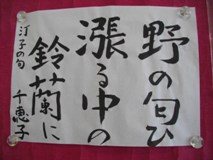 野の匂ひ
漲る中の
鈴蘭に
汀子の句
千恵子